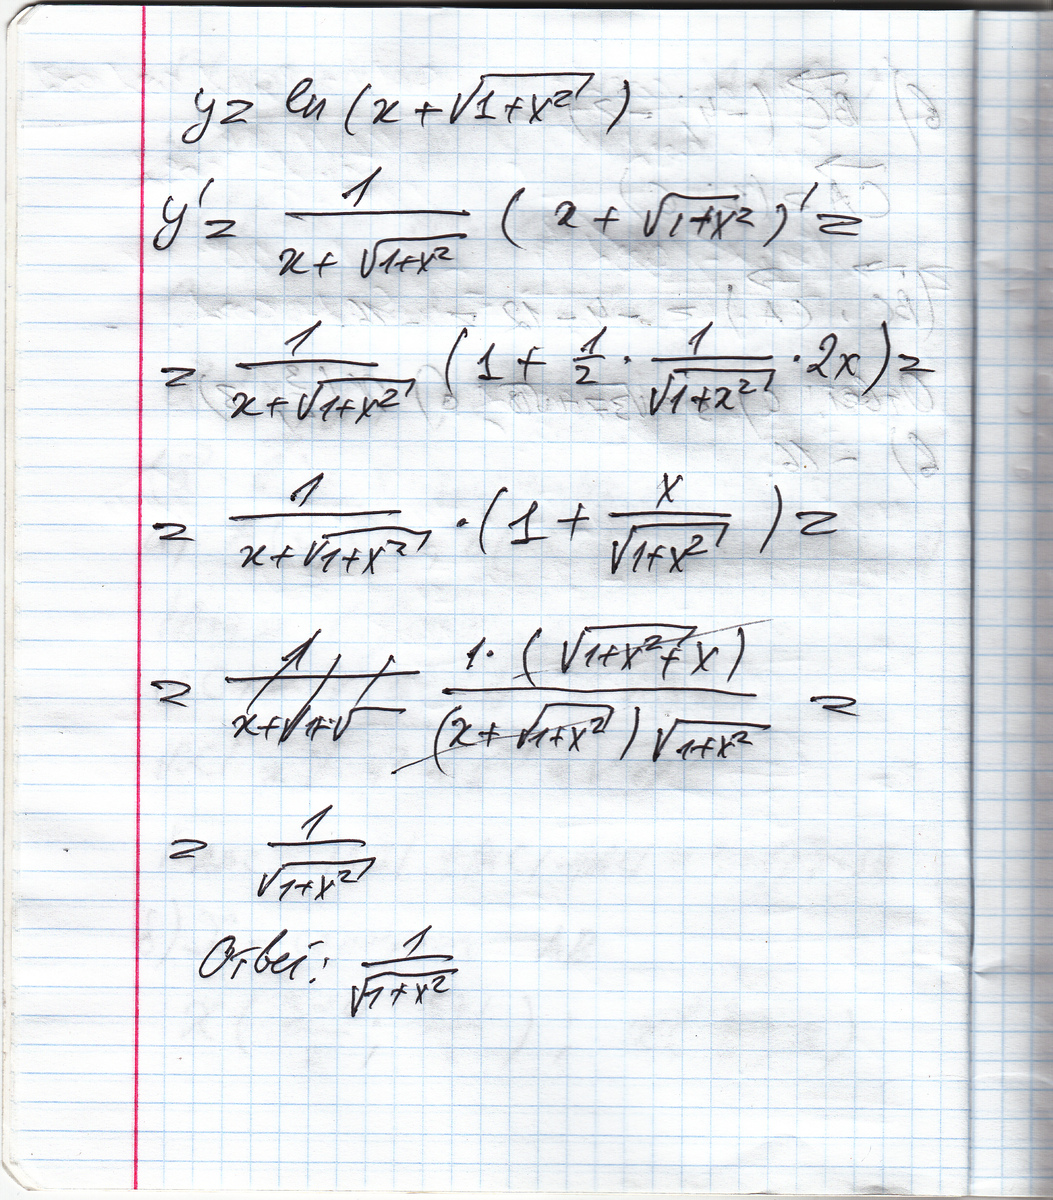 y = ln (x + √(1+x²))
y' = 1/(x + √(1+x²)) (x + √(1+x²))' =
= 1/(x + √(1+x²)) (1 + 1/2 · 1/√(1+x²) · 2x) =
= 1/(x + √(1+x²)) · (1 + x/√(1+x²)) =
= 1 · (√(1+x²) + x)/((x + √(1+x²)) √(1+x²)) =
= 1/√(1+x²)
Ответ: 1/√(1+x²)